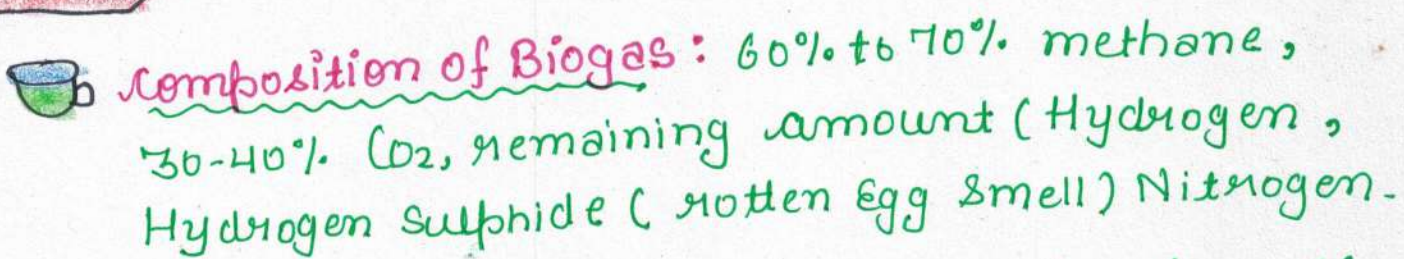 Composition of Biogas : 60% to 70% methane,
30-40% CO2, remaining amount (Hydrogen,
Hydrogen sulphide ( rotten Egg smell) Nitrogen.